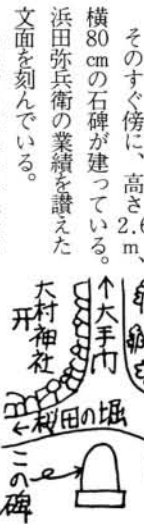 そのすぐ傍に、高さ2.6m、
横80cmの石碑が建っている。
浜田弥兵衛の業績を讃えた
文面を刻んでいる。
↑大手門
大村神社
桜田の堀
←
この碑